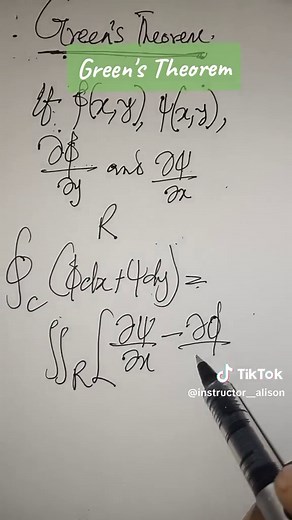 Green's Theorem.
Green's Theorem
If ϕ(x,y), ψ(x,y),
∂ϕ/∂y and ∂ψ/∂x
R
∮c (ϕdx+ψdy) =
∬R [∂ψ/∂x - ∂ϕ/
TikTok
@instructor__alison